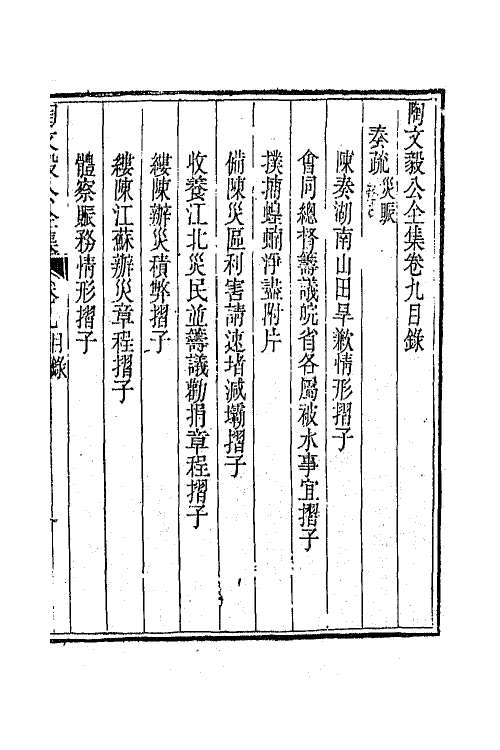 陶文毅公全集卷九目錄
奏疏 災賑
陳奏湖南山田旱歉情形摺子
會同總督籌議皖省各屬被水事宜摺子
撲捕蝗蝻淨盡附片
備陳災區利害請速堵減壩摺子
收養江北災民並籌議勸捐章程摺子
縷陳辦災積弊摺子
縷陳江蘇辦災章程摺子
體察賑務情形摺子
陶文毅公全集 卷九目錄